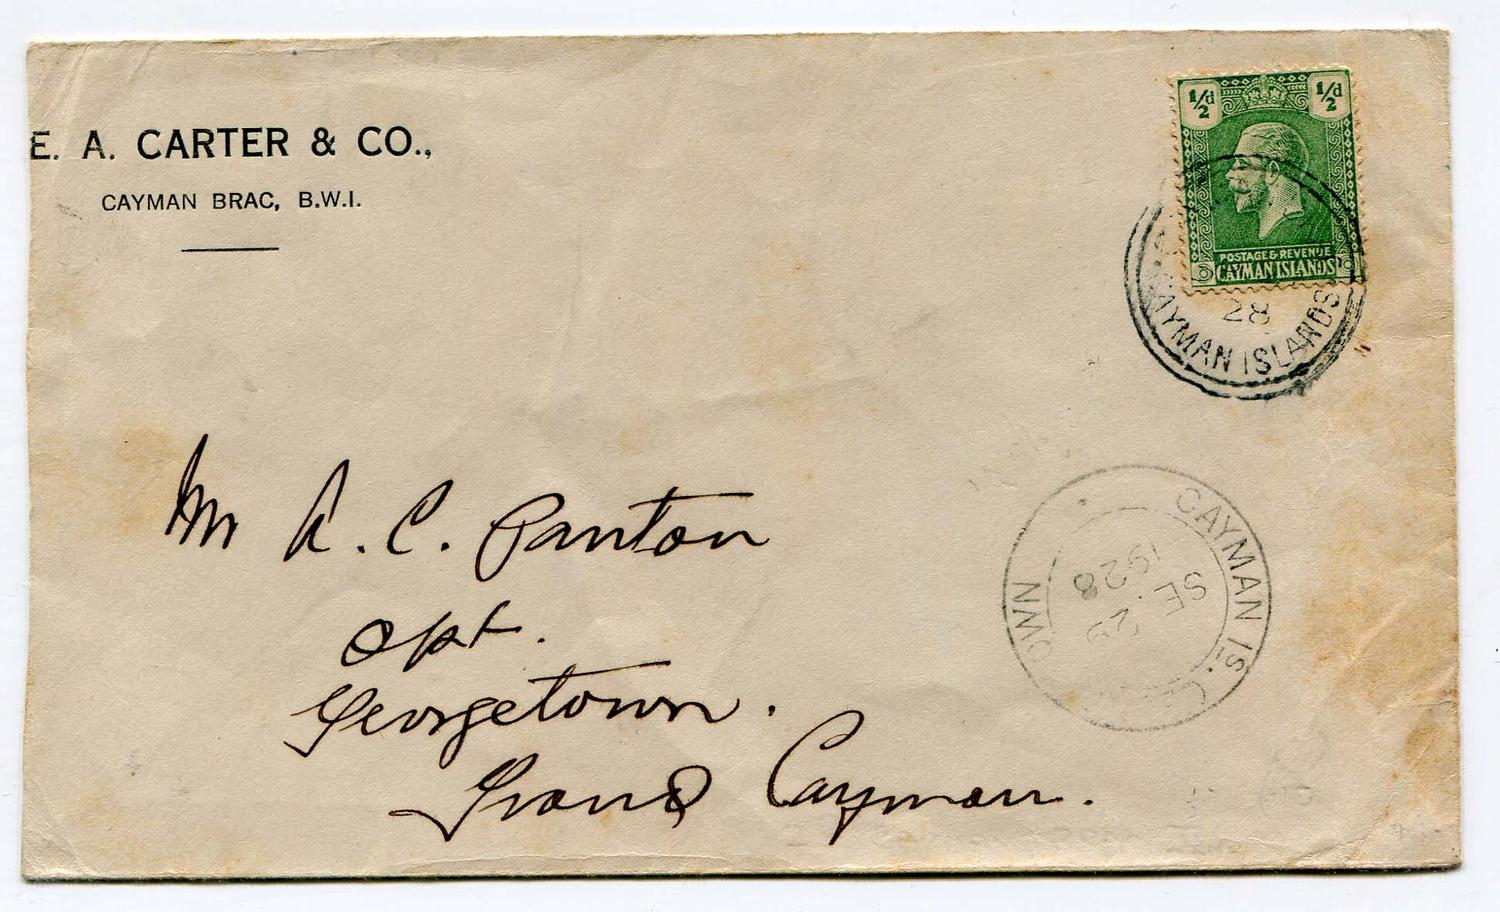 E. A. CARTER & CO.,
CAYMAN BRAC, B.W.I.
1/2d 1/2d
POSTAGE & REVENUE
CAYMAN ISLANDS
28
CAYMAN ISLANDS
Mr A. C. Panton
Georgetown.
Grand Cayman.
CAYMAN IS.
SE 29
1928